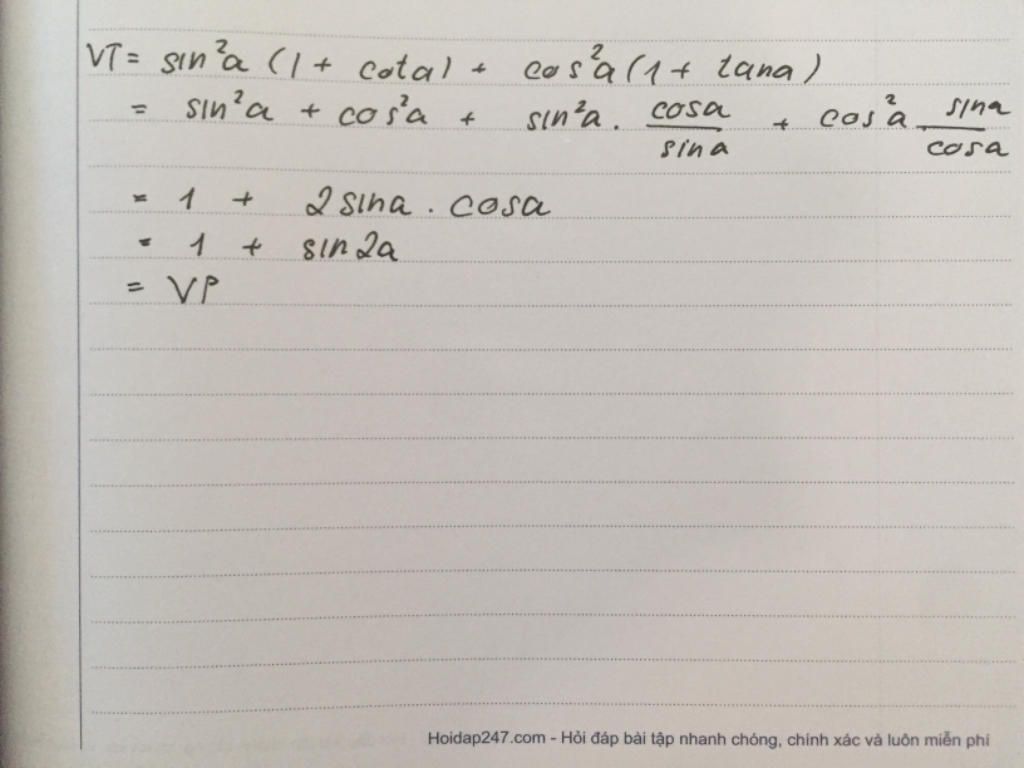 VT = sin²a (1 + cota) + cos²a (1 + tana)
= sin²a + cos²a + sin²a . cosa/sina + cos²a sina/cosa
= 1 + 2sina . cosa
= 1 + sin2a
= VP
Hoidap247.com - Hỏi đáp bài tập nhanh chóng, chính xác và luôn miễn phí